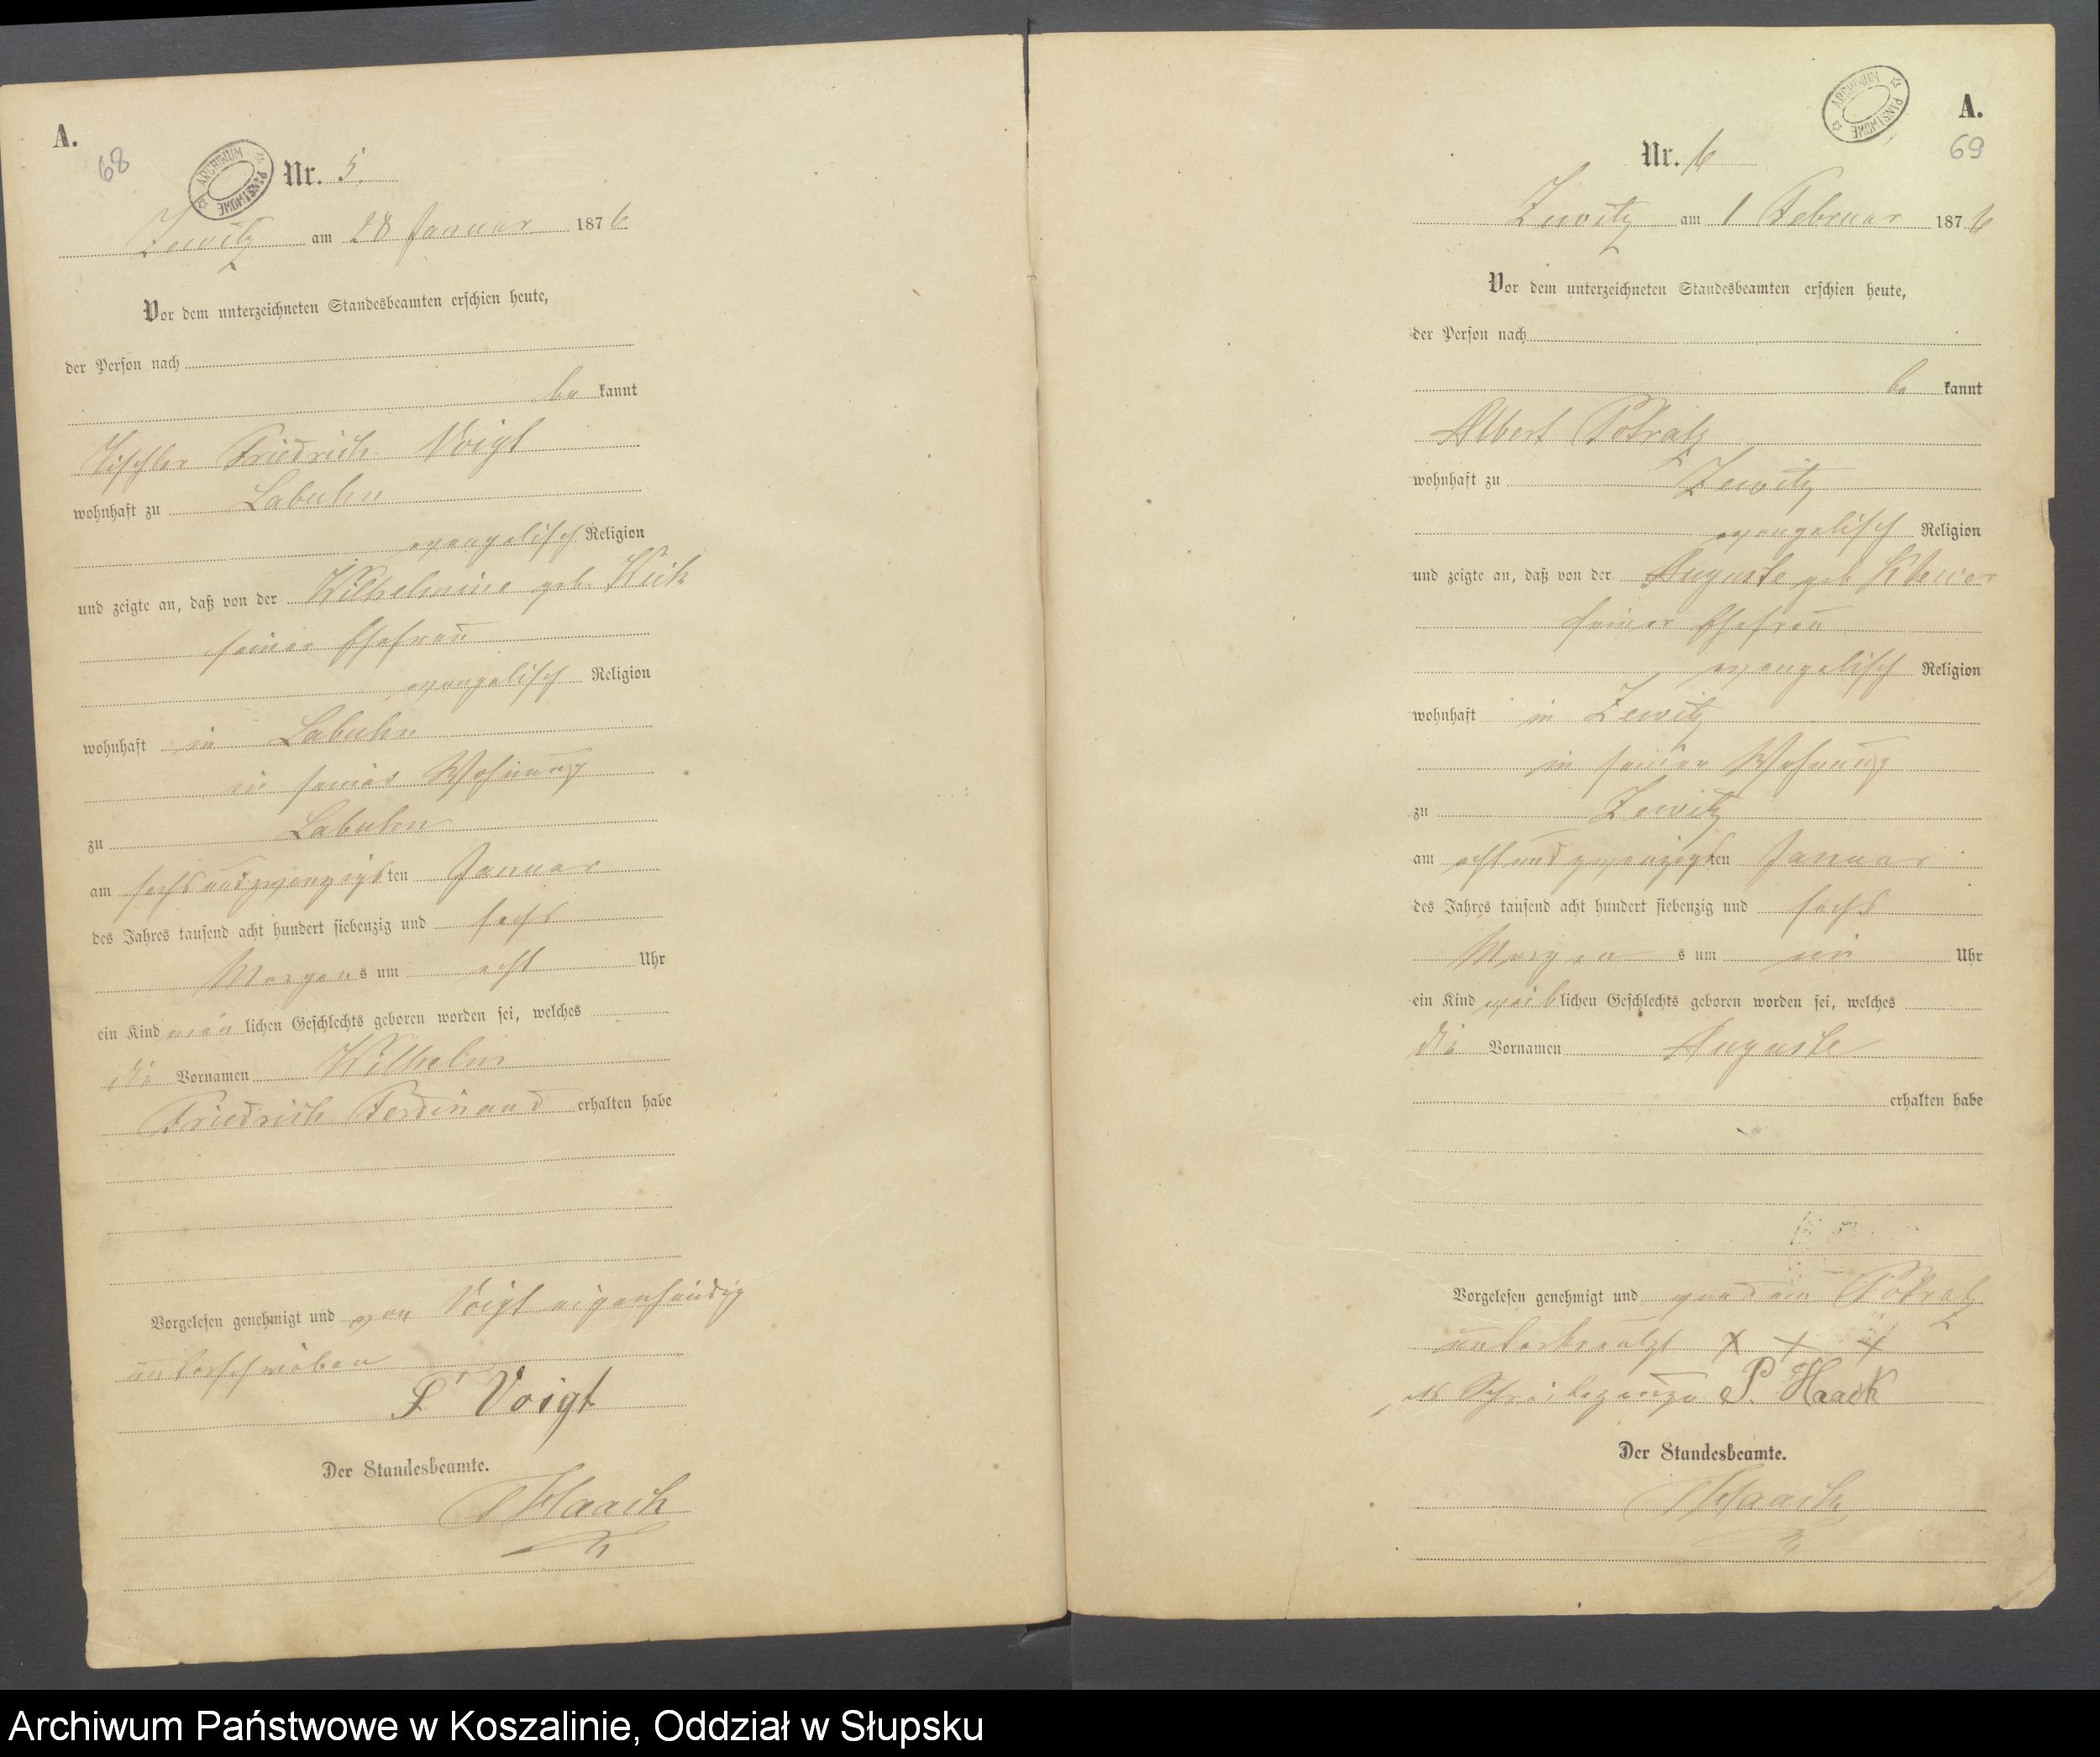 A.
68
ARCHIWUM PAŃSTWOWE
Nr. 5.
Zewitz am 28 Januar 1876
Vor dem unterzeichneten Standesbeamten erschien heute,
der Person nach
be kannt
Tischler Friedrich Voigt
wohnhaft zu Labuhn
evangelisch Religion
und zeigte an, daß von der Wilhelmine geb.
seiner Ehefrau
evangelisch Religion
wohnhaft in Labuhn
in seiner Wohnung
zu Labuhn
am sechsundzwanzigsten Januar
des Jahres tausend acht hundert siebenzig und sechs
Morgens um acht Uhr
ein Kind män lichen Geschlechts geboren worden sei, welches
die Vornamen Wilhelm
Friedrich Ferdinand erhalten habe
Vorgelesen genehmigt und von Voigt eigenhändig
unterschrieben
F Voigt
Der Standesbeamte.
Haack
ARCHIWUM PAŃSTWOWE
A.
69
Nr. 6
Zewitz am 1 Februar 1876
Vor dem unterzeichneten Standesbeamten erschien heute,
der Person nach
be kannt
Albert Potratz
wohnhaft zu Zewitz
evangelisch Religion
und zeigte an, daß von der Auguste geb
seiner Ehefrau
evangelisch Religion
wohnhaft in Zewitz
in seiner Wohnung
zu Zewitz
am achtundzwanzigsten Januar
des Jahres tausend acht hundert siebenzig und sechs
Morgen s um ein Uhr
ein Kind weiblichen Geschlechts geboren worden sei, welches
die Vornamen Auguste
erhalten habe
Vorgelesen genehmigt und Potratz
unterkreutzt X X X
als Schreibezeuge P. Haack
Der Standesbeamte.
Haack
Archiwum Państwowe w Koszalinie, Oddział w Słupsku